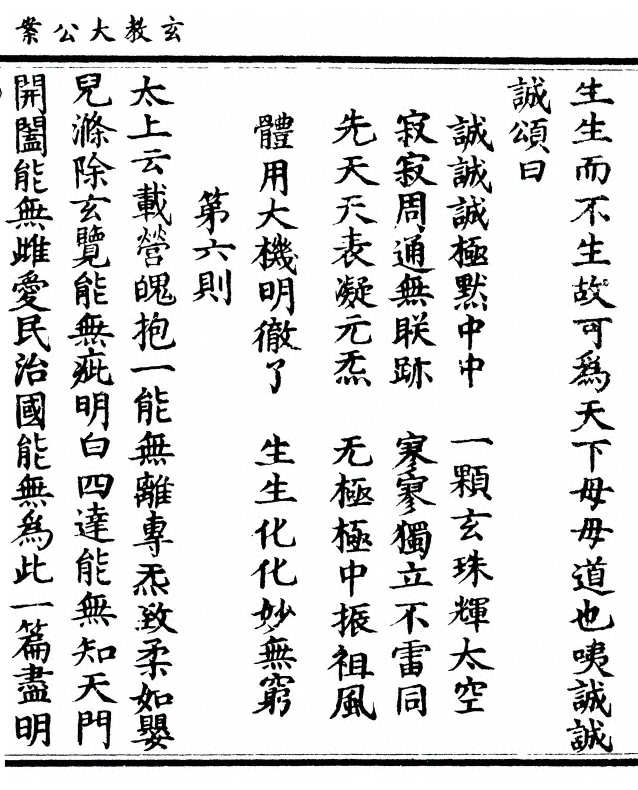 玄教大公案
生生而不生故可為天下母母道也咦誠誠
誠頌曰
誠誠誠極默中中　一顆玄珠輝太空
寂寂周通無眹跡　寥寥獨立不雷同
先天天表凝元炁　无極極中振祖風
體用大機明徹了　生生化化妙無窮
第六則
太上云載營魄抱一能無離專炁致柔如嬰
兒滌除玄覽能無疵明白四達能無知天門
開闔能無雌愛民治國能無為此一篇盡明